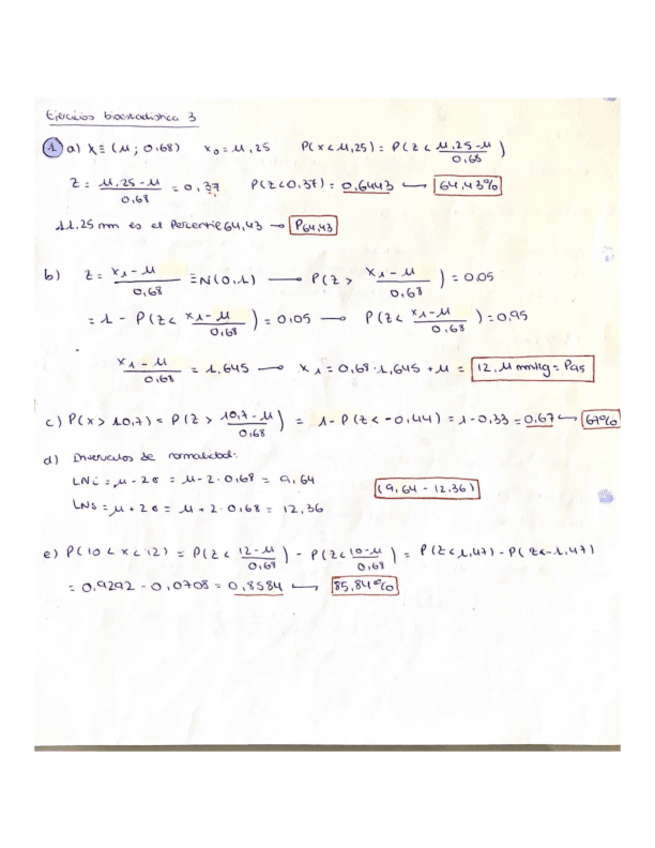 Ejercicios bioestadística 3
1 a) X ≡ (11; 0,68) x₀ = 11,25 P(x < 11,25) = P(z < (11,25-11)/0,68)
z = (11,25-11)/0,68 = 0,37 P(z<0,37) = 0,6443 → 64,43%
11,25 mm es el Percentil 64,43 → P64,43
b) z = (x₁-11)/0,68 ≡ N(0,1) → P(z > (x₁-11)/0,68) = 0,05
= 1 - P(z < (x₁-11)/0,68) = 0,05 → P(z < (x₁-11)/0,68) = 0,95
(x₁-11)/0,68 = 1,645 → x₁ = 0,68·1,645 + 11 = 12,11 mmHg = P95
c) P(x > 10,7) = P(z > (10,7-11)/0,68) = 1-P(z < -0,44) = 1-0,33 = 0,67 → 67%
d) Intervalos de normalidad:
LNi = μ - 2σ = 11 - 2·0,68 = 9,64 (9,64 - 12,36)
LNs = μ + 2σ = 11 + 2·0,68 = 12,36
e) P(10 < x < 12) = P(z < (12-11)/0,68) - P(z < (10-11)/0,68) = P(z<1,47) - P(z<-1,47)
= 0,9292 - 0,0708 = 0,8584 → 85,84%